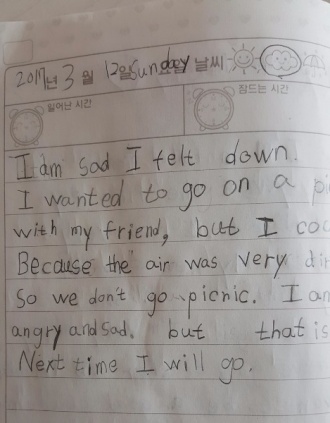 2017년 3월 12일 Sunday요일 날씨
일어난 시간 잠드는 시간
I am sad I felt down.
I wanted to go on a
with my friend, but I
Because the air was very
So we don't go picnic. I
angry and sad. but that is
Next time I will go.